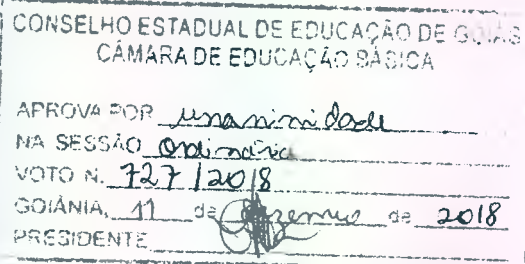 CONSELHO ESTADUAL DE EDUCAÇÃO DE GOIÁS
CÂMARA DE EDUCAÇÃO BÁSICA
APROVA POR unanimidade
NA SESSÃO Ordinária
VOTO N. 727/2018
GOIÂNIA, 11 de dezembro de 2018
PRESIDENTE